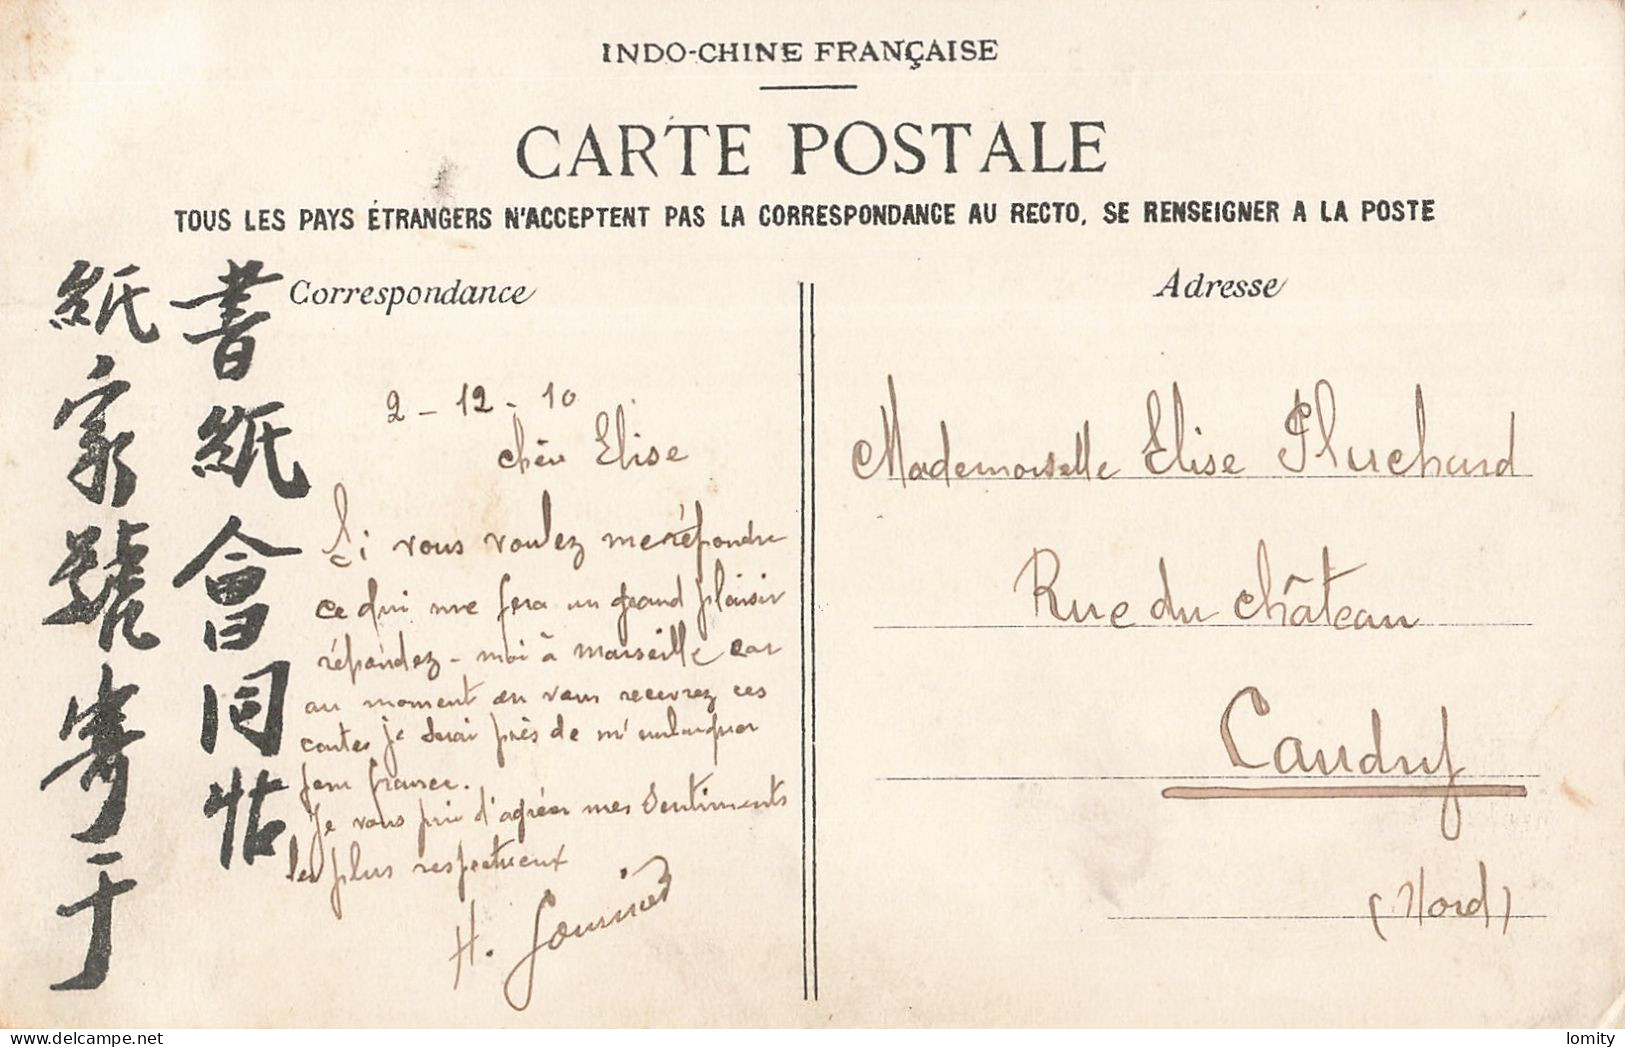 INDO-CHINE FRANÇAISE
CARTE POSTALE
TOUS LES PAYS ÉTRANGERS N'ACCEPTENT PAS LA CORRESPONDANCE AU RECTO, SE RENSEIGNER A LA POSTE
書紙會同帖
紙家號寄于
Correspondance
2 - 12 - 10
chère Elise
Si vous voulez me répondre
ce qui me fera un grand plaisir
répondez-moi à marseille car
au moment en vous recevrez ces
cartes je serai près de m'embarquer
pour france.
Je vous prie d'agréer mes sentiments
les plus respectueux
H.
Adresse
Mademoiselle Elise Pluchard
Rue du Château
Caudry
(Nord)
lomity